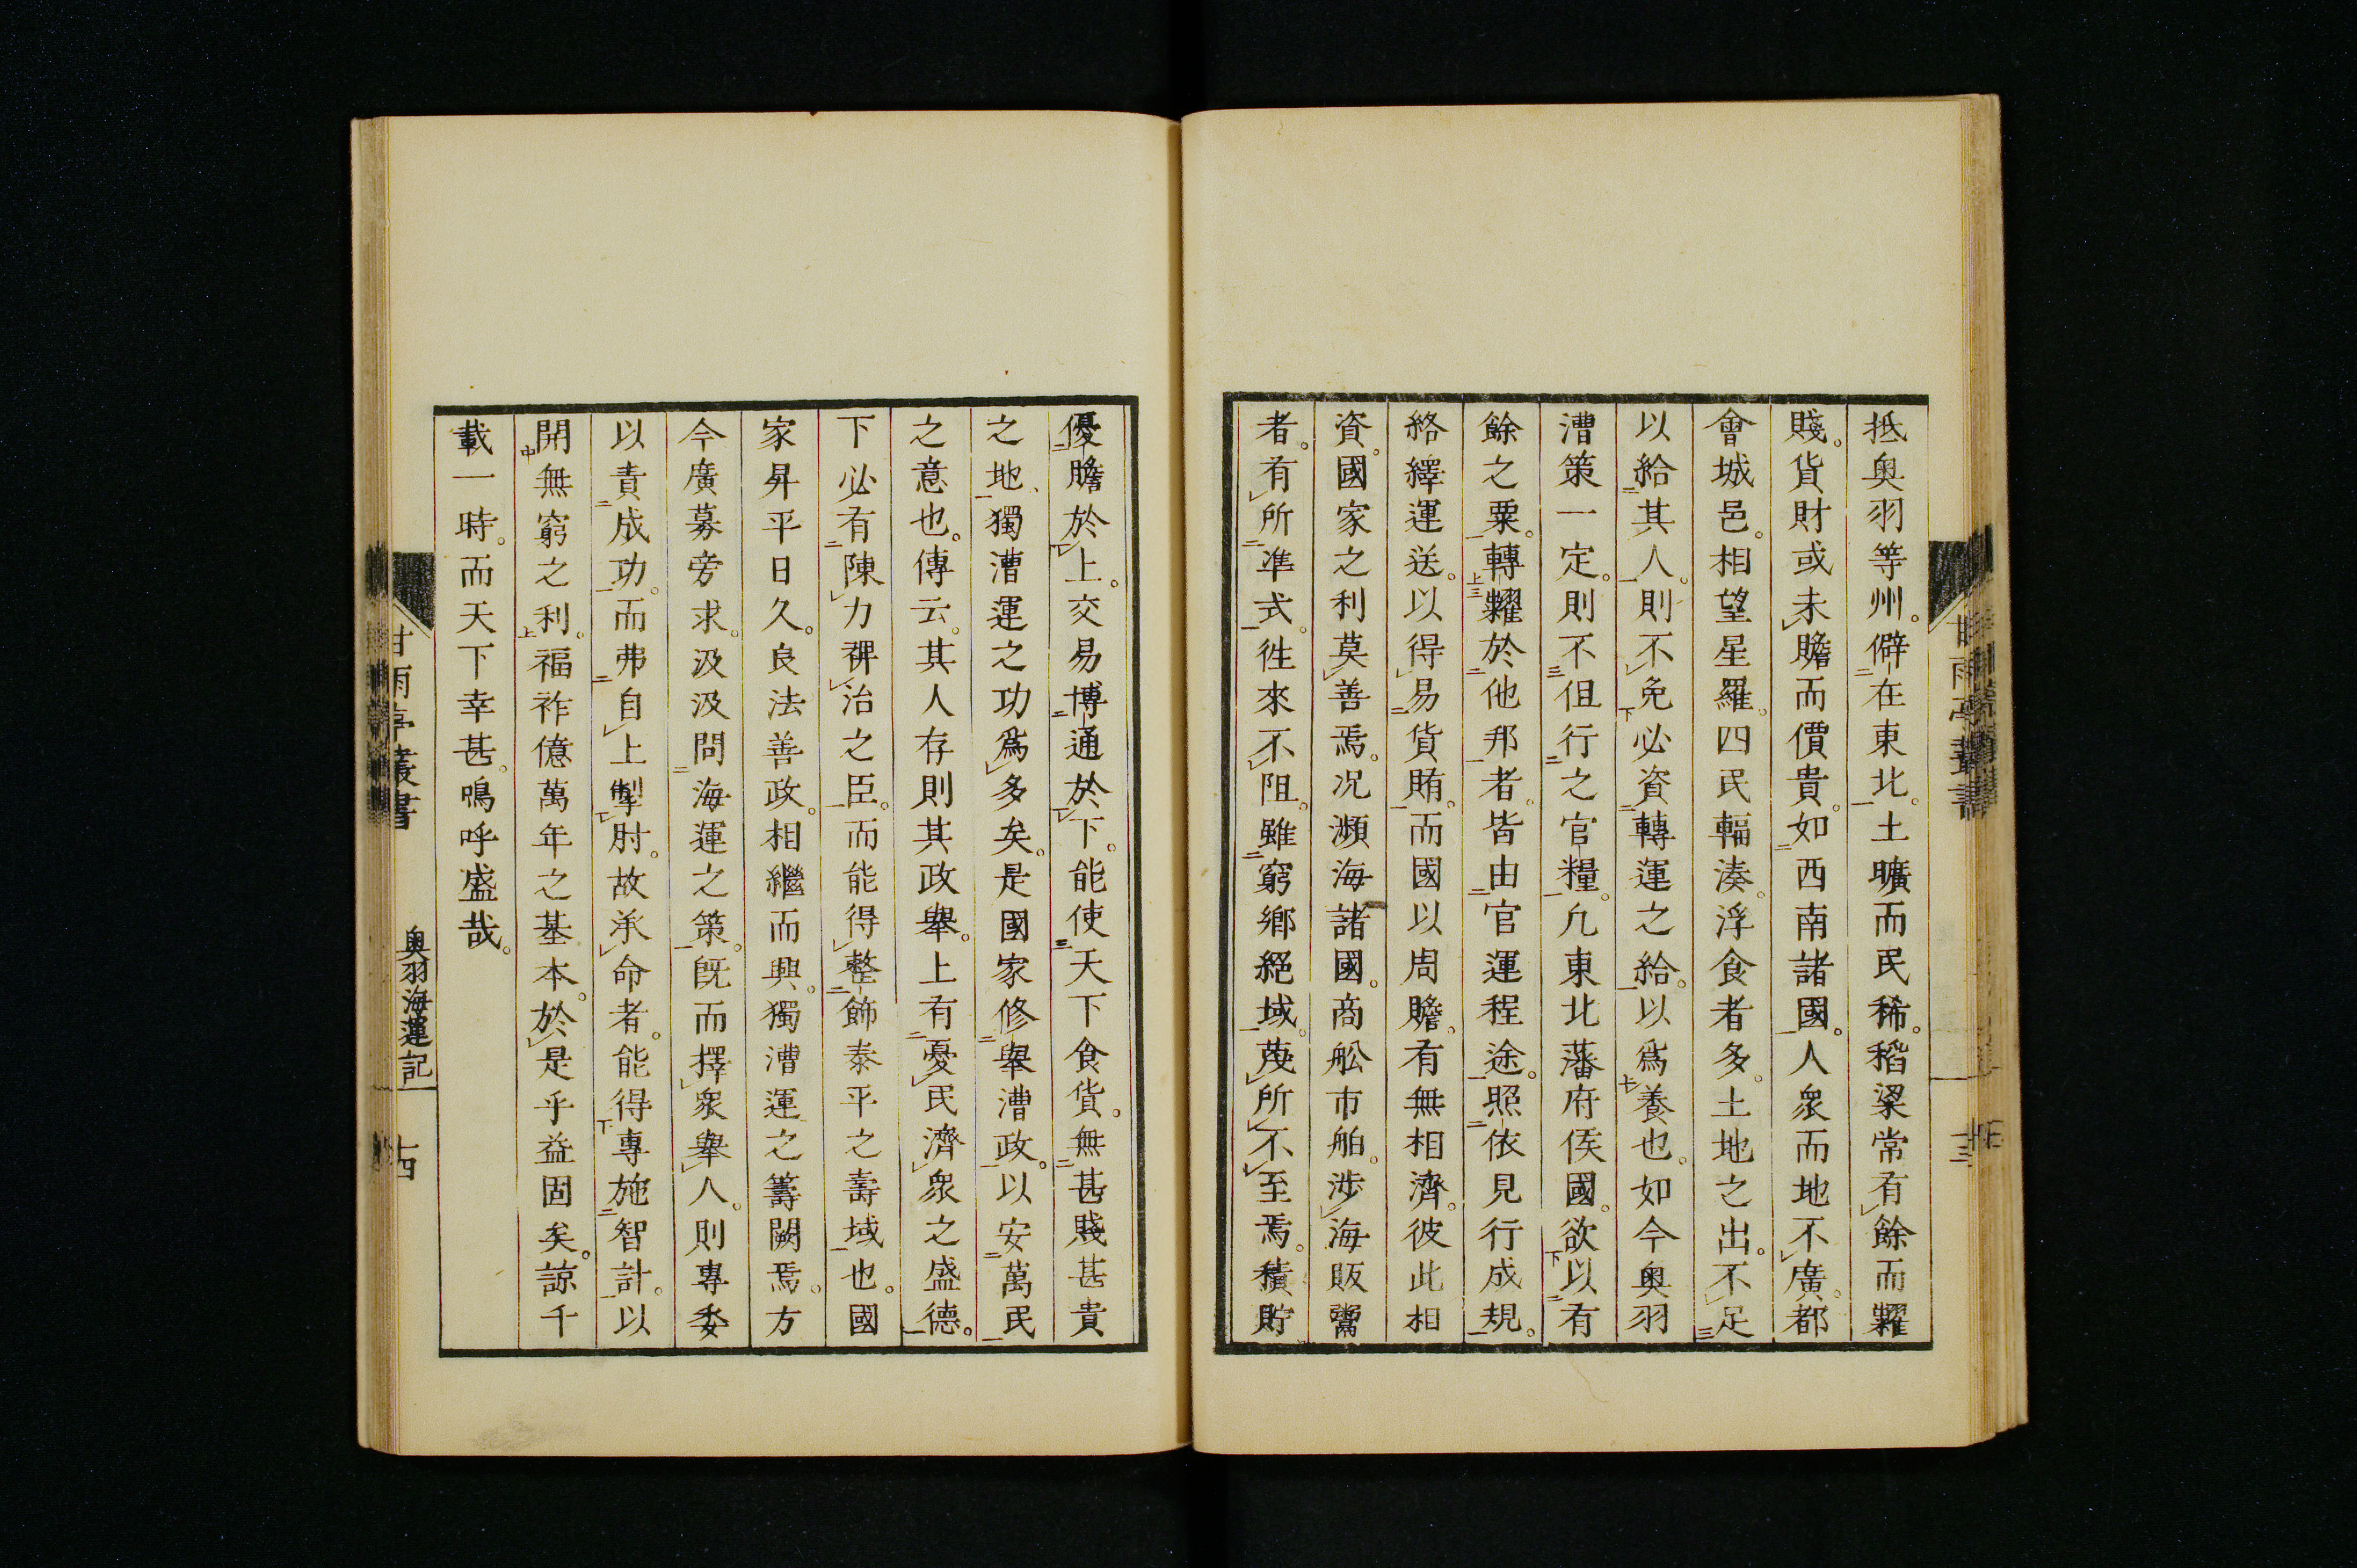 抵奥羽等州。僻在東北。土曠而民稀。稻粱常有餘而糶
賤。貨財或未贍而價貴。如西南諸國。人衆而地不廣。都
會城邑。相望星羅。四民輻湊。浮食者多。土地之出。不足
以給其人。則不免必資轉運之給。以爲養也。如今奥羽
漕策一定。則不但行之官糧。凢東北藩府侯國。欲以有
餘之粟。轉糶於他邦者。皆由官運程途。照依見行成規。
絡繹運送。以得易貨賄。而國以周贍。有無相濟。彼此相
資。國家之利莫善焉。况瀕海諸國。商舩市舶。涉海販鬻
者。有所準式。徃來不阻。雖窮鄉絕域。蔑所不至焉。積貯
優贍於上。交易博通於下。能使天下食貨。無甚賤甚貴
之地、獨漕運之功爲多矣。是國家修舉漕政。以安萬民
之意也。傳云。其人存則其政舉。上有憂民濟衆之盛德。
下必有陳力裨治之臣。而能得整飾泰平之壽域也。國
家昇平日久。良法善政。相繼而興。獨漕運之籌闕焉。方
今廣募旁求。汲汲問海運之策。旣而擇衆舉人。則專委
以責成功。而弗自上掣肘。故承命者。能得專施智計。以
開無窮之利。福祚億萬年之基本。於是乎益固矣。諒千
載一時。而天下幸甚。鳴呼盛哉。
甘雨亭叢書
奥羽海運記
十四